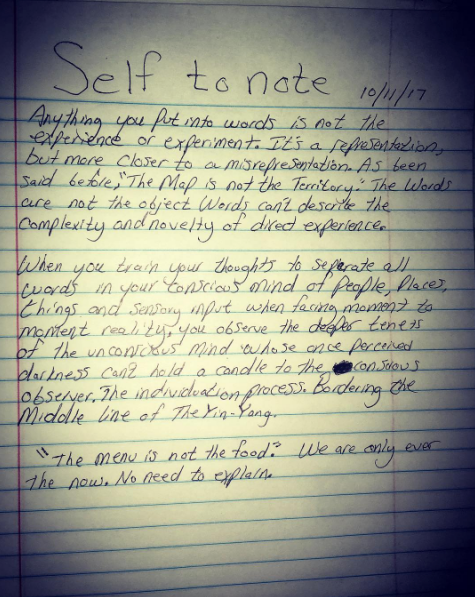 Self to note
10/11/17
Anything you put into words is not the
experience or experiment. It's a representation,
but more closer to a misrepresentation. As been
said before, "The Map is not the Territory." The Words
are not the object Words can't describe the
complexity and novelty of direct experience.
When you train your thoughts to separate all
words in your conscious mind of People, Places,
things and sensory input when facing moment to
moment reality, you observe the deeper tenets
of the unconscious mind whose once perceived
darkness can't hold a candle to the conscious
observer. The individuation process. Bordering the
Middle line of The Yin-Yang.
"The menu is not the food." We are only ever
the now. No need to explain.